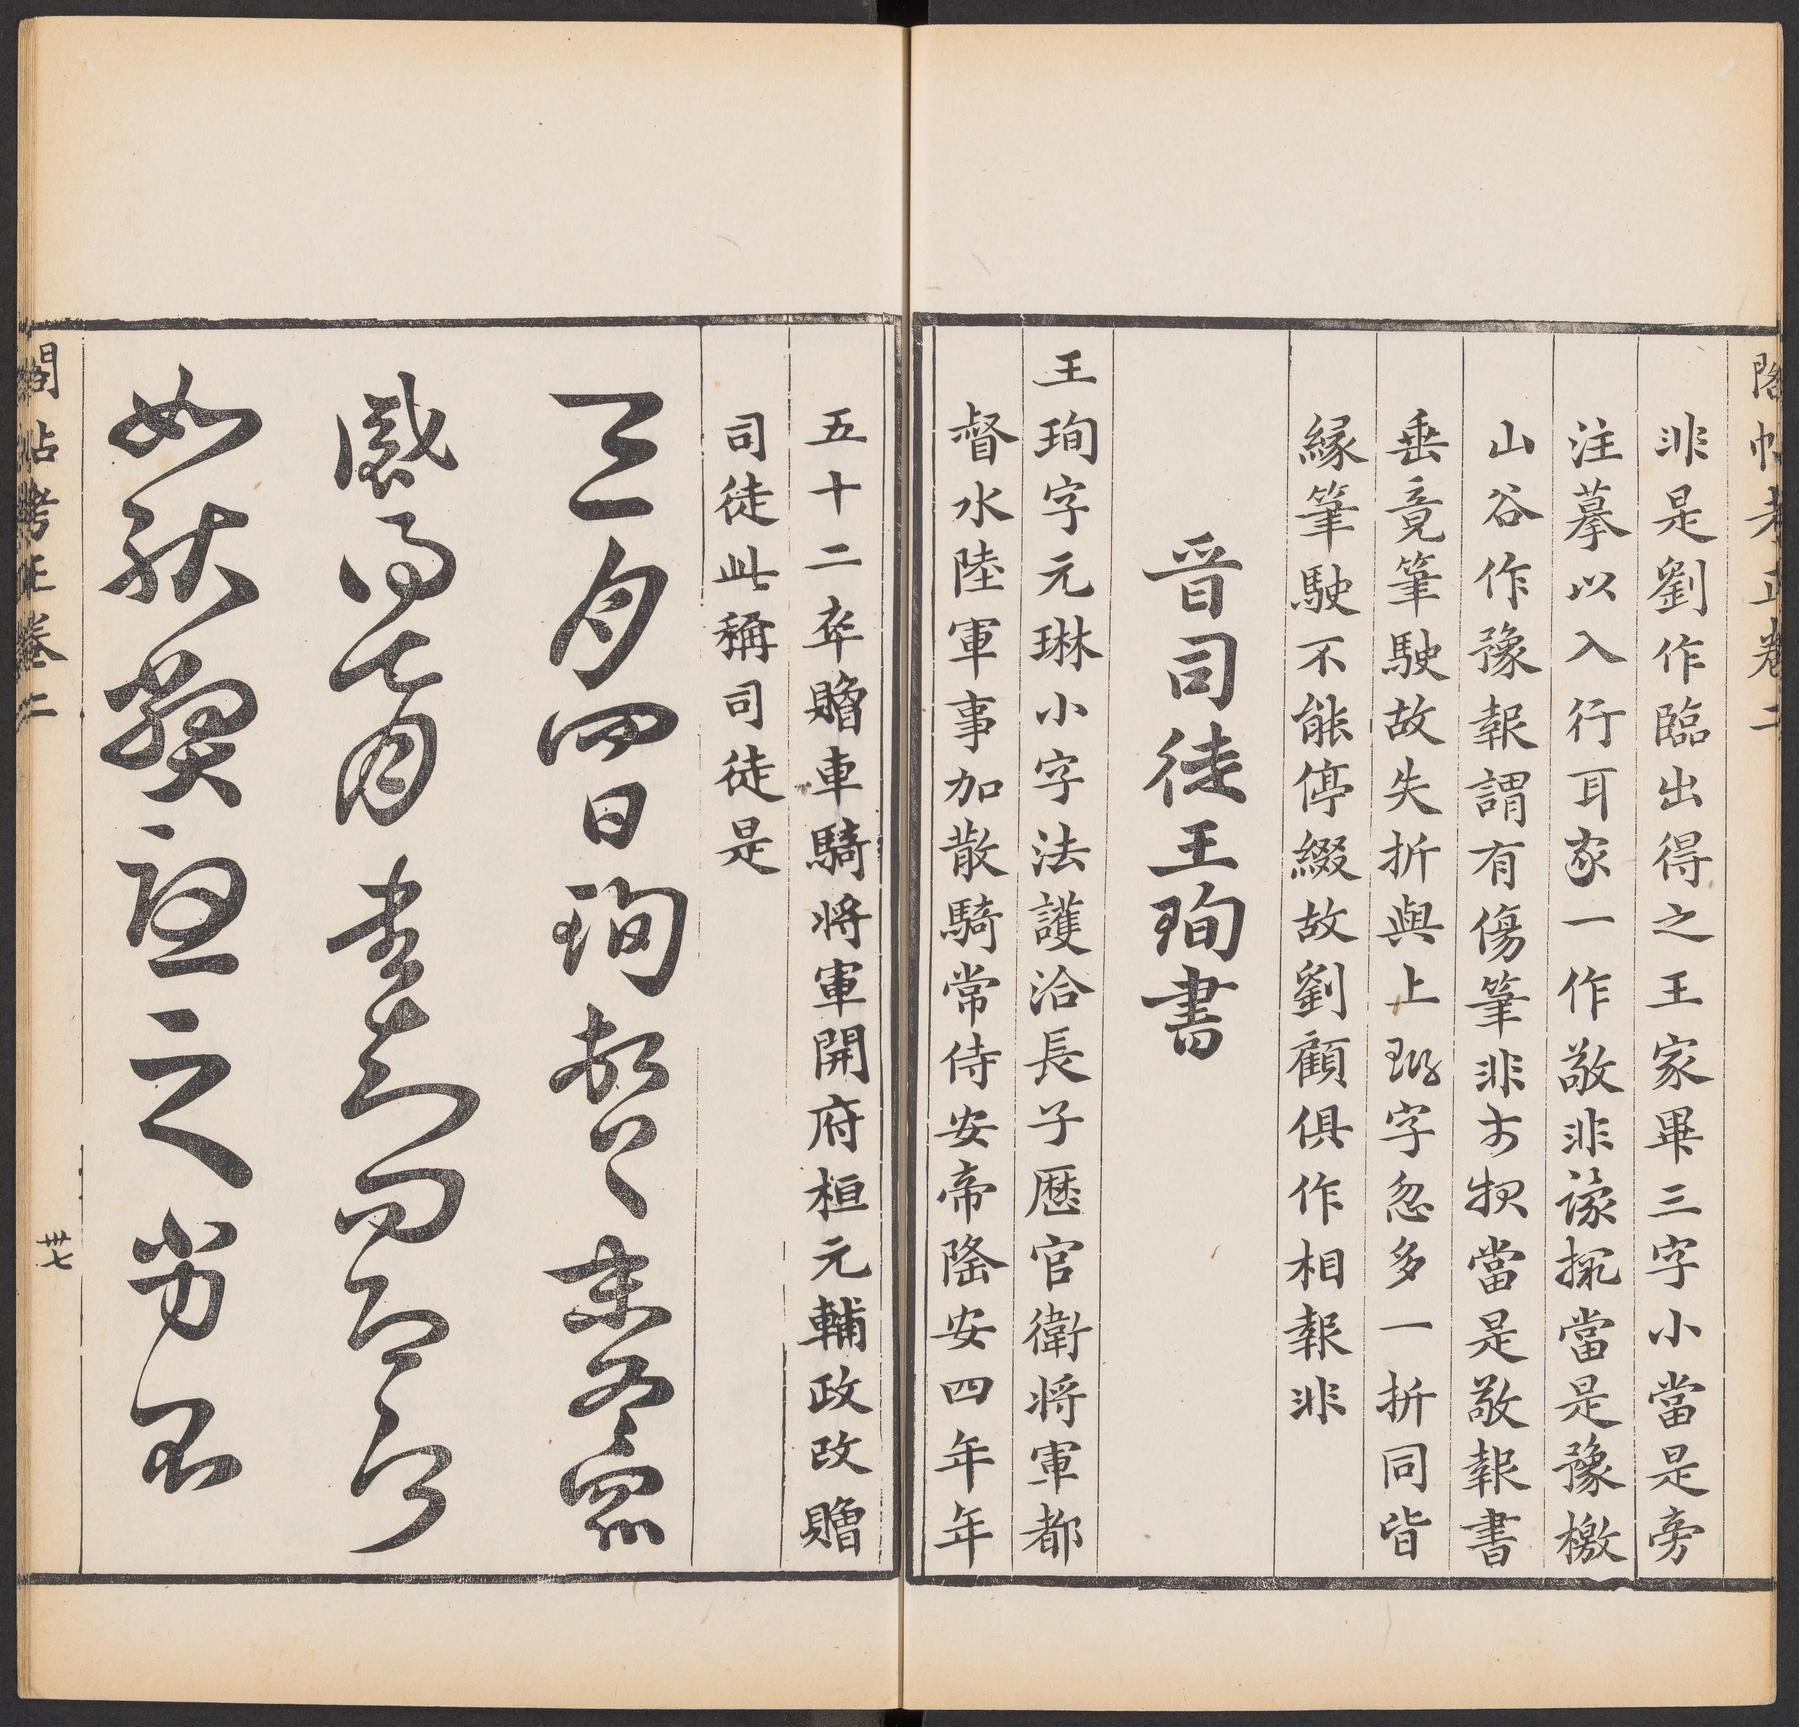 閣帖考正卷二
非是劉作臨出得之王家畢三字小當是旁
注摹以入行耳家一作敬非 當是豫檄
山谷作豫報謂有傷筆非 當是敬報書
垂竟筆駛故失折與上 字忽多一折同皆
緣筆駛不能停綴故劉顧俱作相報非
晉司徒王珣書
王珣字元琳小字法護洽長子歷官衛將軍都
督水陸軍事加散騎常侍安帝隆安四年年
五十二卒贈車騎將軍開府桓元輔政改贈
司徒此稱司徒是
三月四日珣頓首末冬眾
感得七月書知問
如狀 之勞不
閣帖考正卷二
卅七